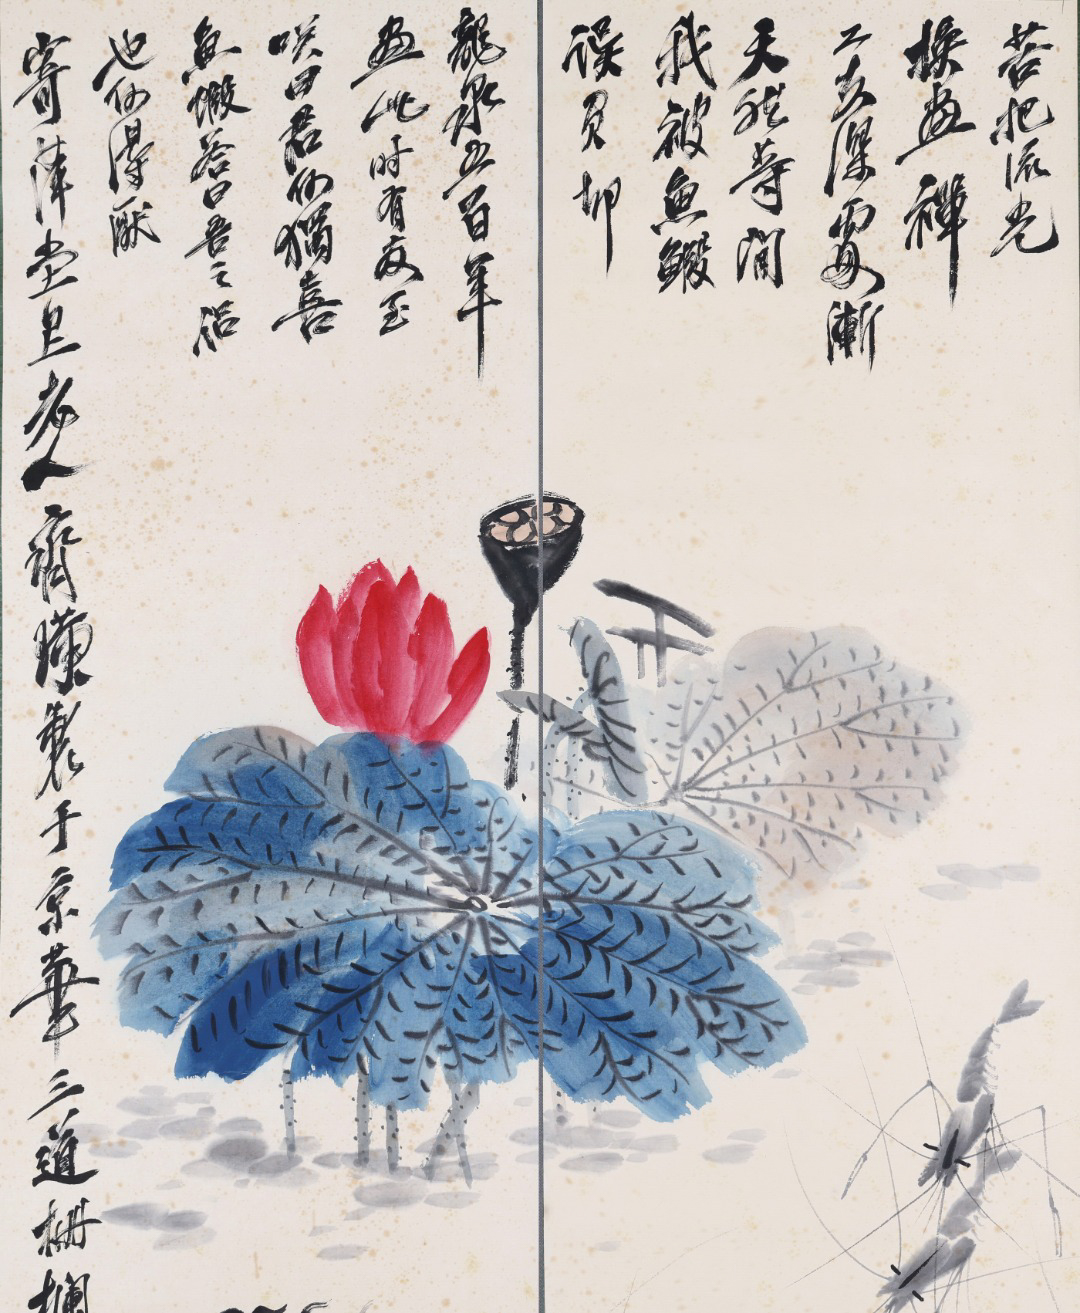 苦把流光
換畫禪
工夫深處漸
天然等閒
我被魚鰕
誤負卻
龍泉五百年
畫此時有友至
咲曰君何獨喜
魚蝦答曰吾之侶
也何得厭
寄萍堂上老人齊璜製于京華三道柵欄